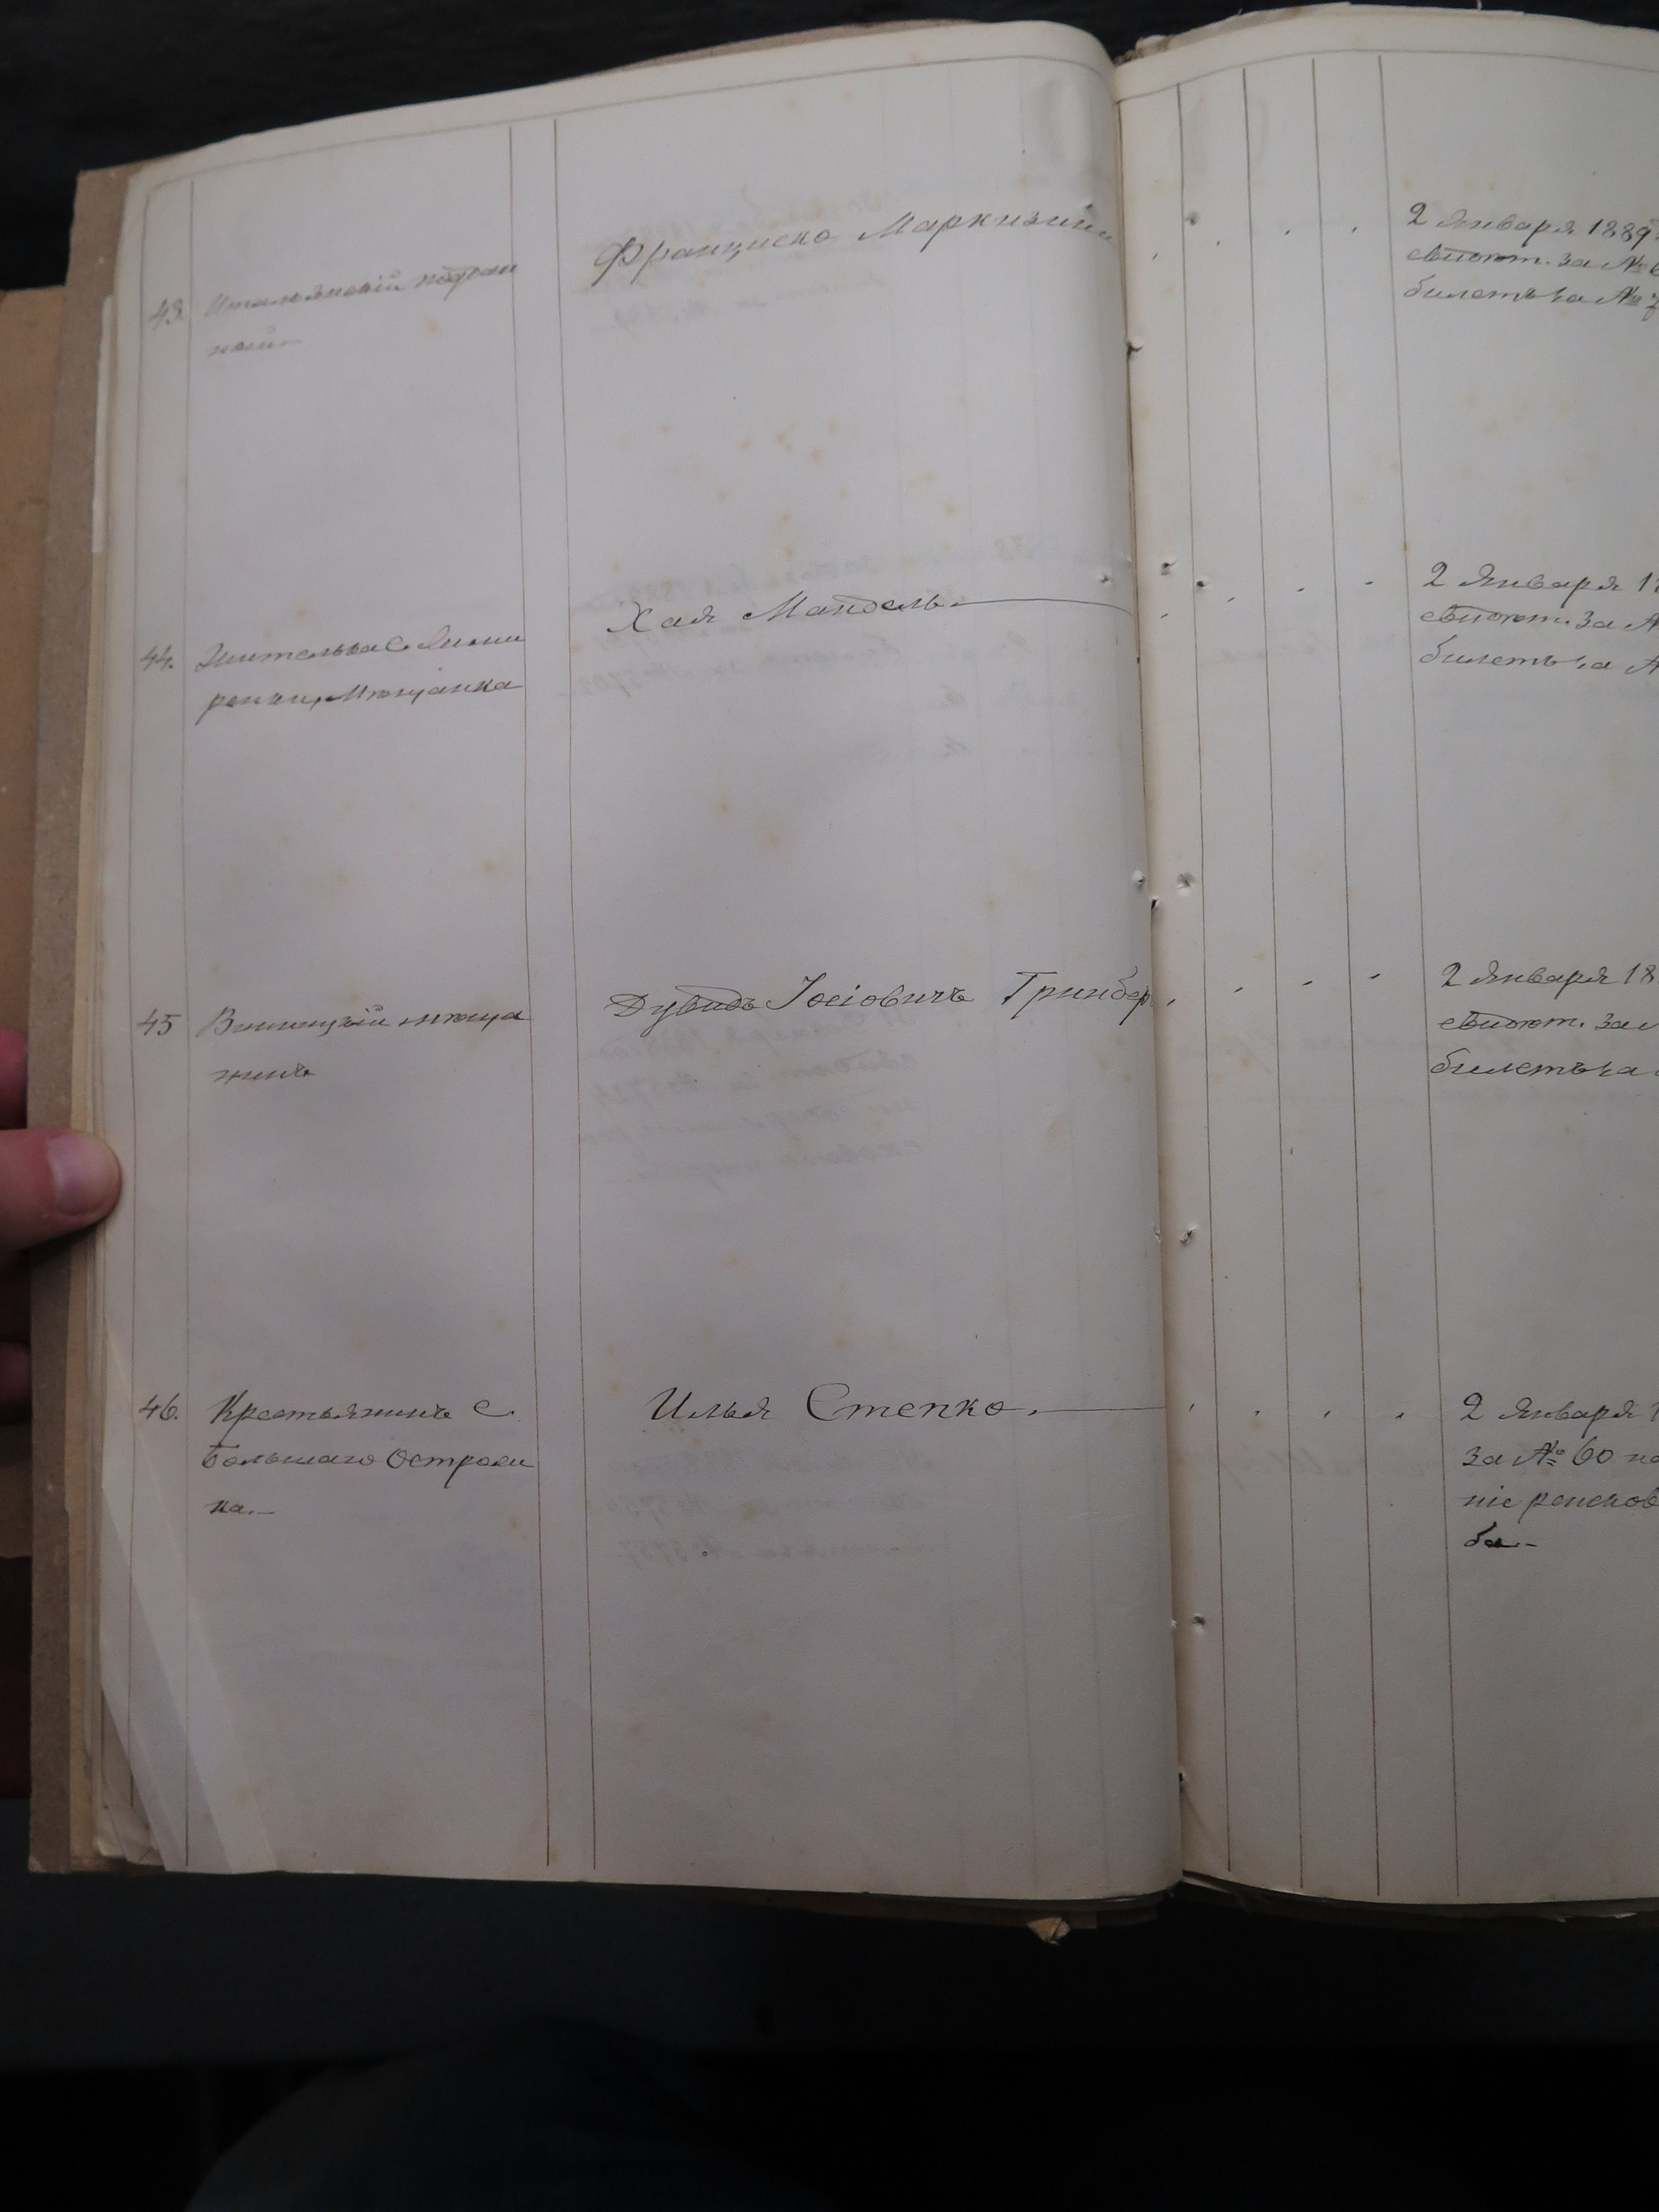 43. Итальянскій поддан
ный
Франциско Маркизини
2 Января 1889
свидѣт. за №
билетъ за №
44. Жителька с.
мѣщанка
Хая Мандель
2 Января 1
свидѣт. за №
билетъ за №
45 Винницкій мѣща
нинъ
Дувидъ Іосіовичъ Гринбер
2 Января 18
свидѣт. за
билетъ за
46. Крестьянинъ с.
Большаго Остроли
ка.
Илья Степко.
2 Января 1
за № 60 на
ніе ренсков
ба.